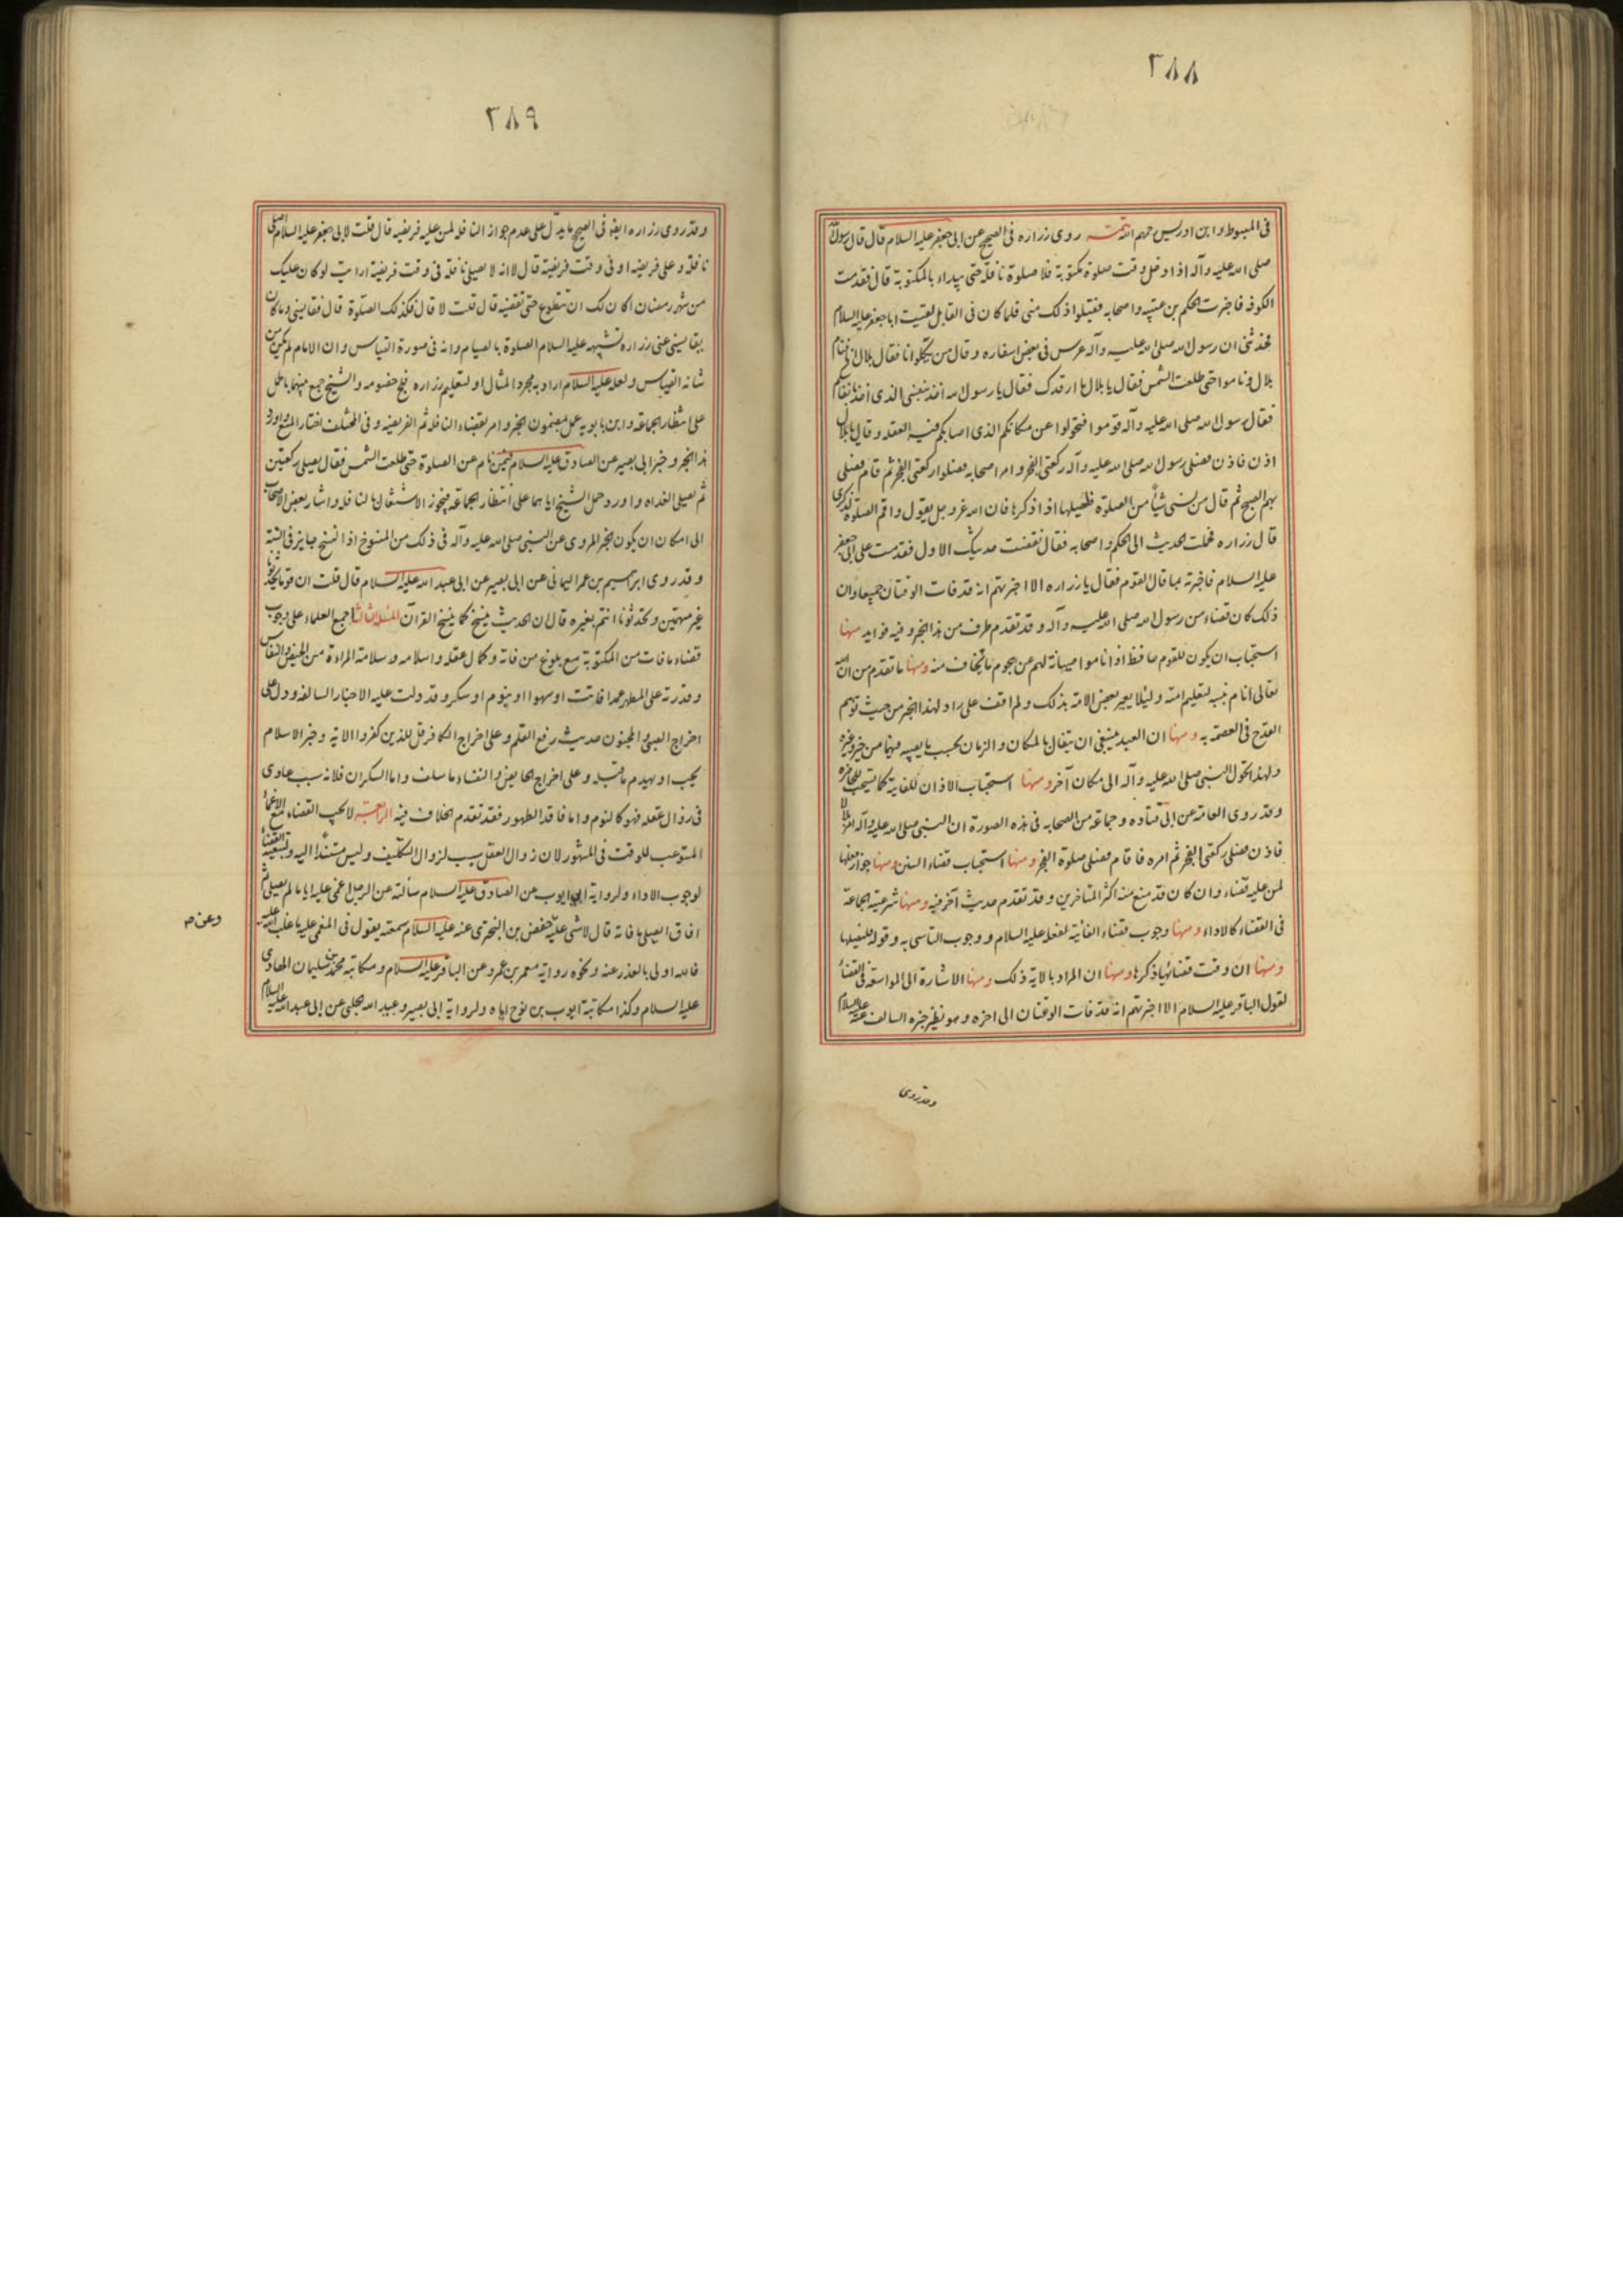 ٢٨٨
في المبسوط وابن ادريس رحمهم الله روى زراره في الصحيح عن ابى جعفر عليه السلام قال قال رسول الله
صلى الله عليه وآله اذا دخل وقت صلوة مكتوبة فلا صلوة نافلة حتى يبداء بالمكتوبة قال فقدمت
الكوفه فاخبرت الحكم بن عتيبه واصحابه فقبلوا ذلك منى فلما كان فى القابل لقيت ابا جعفر عليه السلام
فحدثنى ان رسول الله صلى الله عليه وآله عرس فى بعض اسفاره وقال من يكلوانا فقال بلال انا فنام
بلال وناموا حتى طلعت الشمس فقال يا بلال ما ارقدك فقال يا رسول الله اخذ بنفسى الذى اخذ بانفاسكم
فقال رسول الله صلى الله عليه وآله قوموا فتحولوا عن مكانكم الذى اصابكم فيه الغفلة وقال يا بلال
اذن فاذن فصلى رسول الله صلى الله عليه وآله ركعتى الفجر وامر اصحابه فصلوا ركعتى الفجر ثم قام فصلى
بهم الصبح ثم قال من نسى شيأ من الصلوة فليصلها اذا ذكرها فان الله عز وجل يقول واقم الصلوة لذكرى
قال زراره فحملت الحديث الى الحكم واصحابه فقال نقضت حديثك الاول فقدمت على ابى جعفر
عليه السلام فاخبرته بما قال القوم فقال يا زراره الا اخبرتهم انه قد فات الوقتان جميعا وان
ذلك كان قضاء من رسول الله صلى الله عليه وآله وقد تقدم طرف من هذا الخبر وفيه فوايد منها
استحباب ان يكون للقوم حافظ اذا ناموا صيانة لهم عن هجوم ما يخاف منه ومنها ما تقدم من ان الله
تعالى انام نبيه لتعليم امته ولئلا يعير بعض الامة بذلك ولم اقف على راد لهذا الخبر من حيث توهم
القدح فى العصمة به ومنها ان العبد ينبغى ان يتفال بالمكان والزمان بحسب ما يصيبه فيهما من خير وغيره
ولهذا تحول النبى صلى الله عليه وآله الى مكان آخر ومنها استحباب الاذان للفايتة كما يستحب للحاضره
وقد روى العامة عن ابى قتاده وجماعة من الصحابه فى هذه الصورة ان النبى صلى الله عليه وآله امر بلالا
فاذن فصلى ركعتى الفجر ثم امره فاقام فصلى صلوة الفجر ومنها استحباب قضاء السنن ومنها جواز فعلها
لمن عليه قضاء وان كان قد منع منه اكثر المتاخرين وقد تقدم حديث آخر فيه ومنها شرعية الجماعة
فى القضاء كالاداء ومنها وجوب قضاء الفائتة لفعله عليه السلام ووجوب التاسى به وقوله فليصلها
ومنها ان وقت قضائها ذكرها ومنها ان المراد بالاية ذلك ومنها الاشارة الى المواسعة فى القضاء
لقول الباقر عليه السلام الا اخبرتهم انه قد فات الوقتان الى اخره وهو نظير خبره السالف عنه عليه السلام
وقد روى
٢٨٩
وقد روى زراره ايضا فى الصحيح ما يدل على عدم جواز النافلة لمن عليه فريضه قال قلت لابى جعفر عليه السلام اصلى
نافلة وعلى فريضه او فى وقت فريضة قال لا انه لا يصلى نافلة فى وقت فريضة ارايت لو كان عليك
من شهر رمضان اكان لك ان تتطوع حتى تقضيه قال قلت لا قال فكذلك الصلوة قال فقايسنى وما كان
يقايسنى عنى زراره تشبيهه عليه السلام الصلوة بالصيام وانه فى صورة القياس وان الامام لم يكن من
شانه القياس ولعله عليه السلام اراد به مجرد المثال او لتعليم زراره فلج خصومه والشيخ جمع بينهما بالحمل
على انتظار الجماعة وابن بابويه عمل بمضمون الخبر وامر بقضاء النافلة ثم الفريضه وفى المختلف اختار المنع واورد
هذا الخبر وخبر ابى بصير عن الصادق عليه السلام فيمن نام عن الصلوة حتى طلعت الشمس فقال يصلى ركعتين
ثم يصلى الغداه واورد حمل الشيخ اياهما على انتظار الجماعة فيجوز الاشتغال بالنافله واشار بعض الاصحاب
الى امكان ان يكون الخبر المروى عن النبى صلى الله عليه وآله فى ذلك من المنسوخ اذ النسخ جايز فى السنة
وقد روى ابراهيم بن عمر اليمانى عن ابى بصير عن ابى عبد الله عليه السلام قال قلت ان قوما يحدثونا
غير متهمين وتحدثونا انتم بغيره قال ان الحديث ينسخ كما ينسخ القرآن المسئلة الثالثة اجمع العلماء على وجوب
قضاء ما فات من المكتوبة مع بلوغ من فاتة وكمال عقله واسلامه وسلامة المراءة من الحيض والنفاس
وقدرته على المطهر عمدا فاتت او سهوا او بنوم او سكر وقد دلت عليه الاخبار السالفه ودل على
اخراج الصبى والمجنون حديث رفع القلم وعلى اخراج الكافر قل للذين كفروا الاية وخبر الاسلام
يجب او يهدم ما قبله وعلى اخراج الحايض والنفساء ما سلف واما السكران فلانه سبب عادى
فى زوال عقله فهو كالنوم واما فاقد الطهور فقد تقدم الخلاف فيه الرابعة لا يجب القضاء مع الاغماء
المستوعب للوقت فى المشهور لان زوال العقل سبب لزوال التكليف وليس مستندا اليه وتبعية القضاء
لوجوب الاداء ولرواية ابى ايوب عن الصادق عليه السلام سالته عن الرجل اغمى عليه اياما لم يصلى ثم
افاق ايصلى ما فاته قال لا شى عليه حفص بن البخترى عنه عليه السلام سمعته يقول فى المغمى عليه ما غلب الله عليه
وعن صح
فالله اولى بالعذر عنه ونحوه رواية معمر بن عمر وعن الباقر عليه السلام ومكاتبة محمد بن سليمان الهادى
عليه السلام وكذا مكاتبة ايوب بن نوح اياه ولرواية ابى بصير وعبيد الله الحلبى عن ابى عبد الله عليه السلام